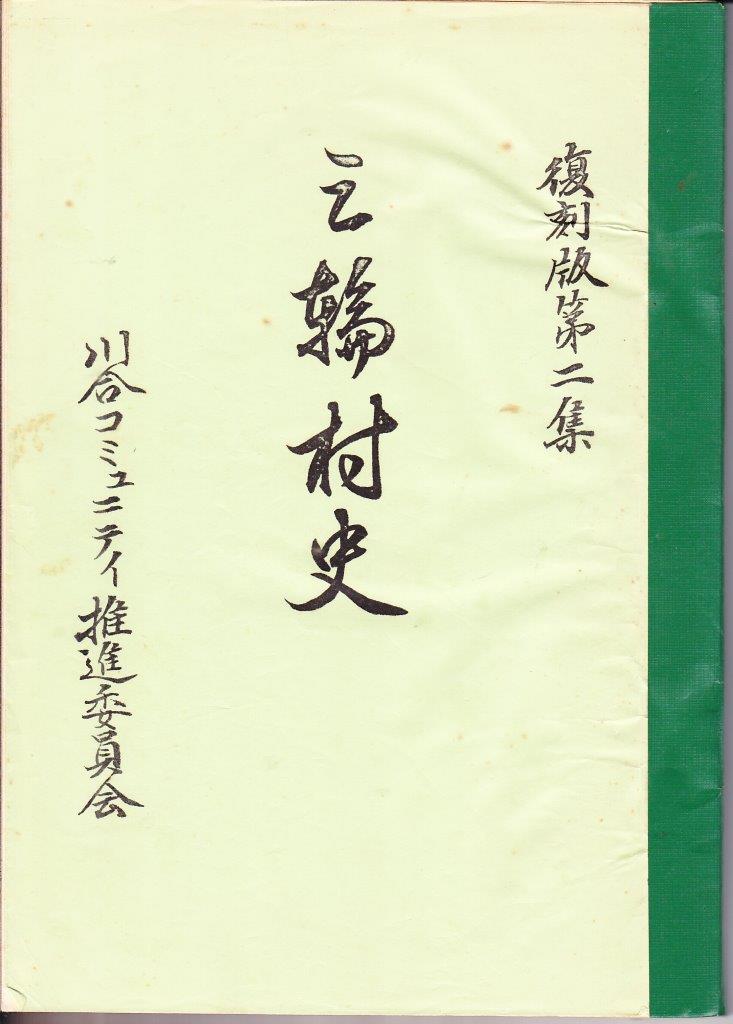 復刻版第二集
三輪村史
川合コミュニティ推進委員会